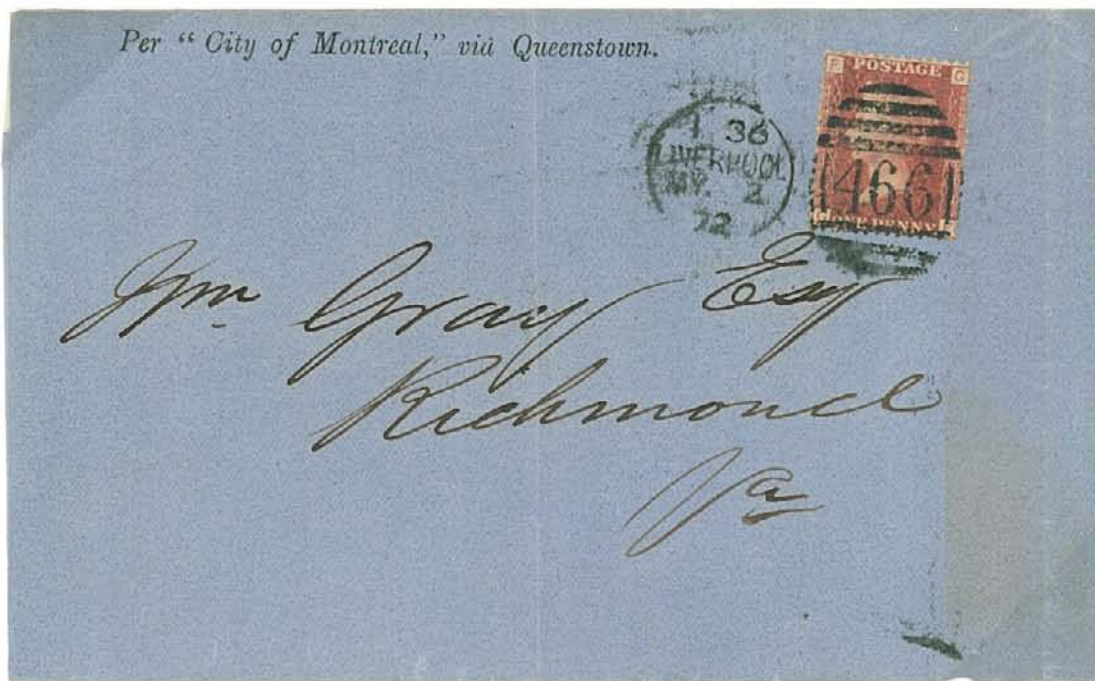 Per “ City of Montreal,” viâ Queenstown.
F POSTAGE G
1 36
LIVERPOOL
MY. 2
72
466
ONE PENNY
Wm Gray Esq
Richmond
Va